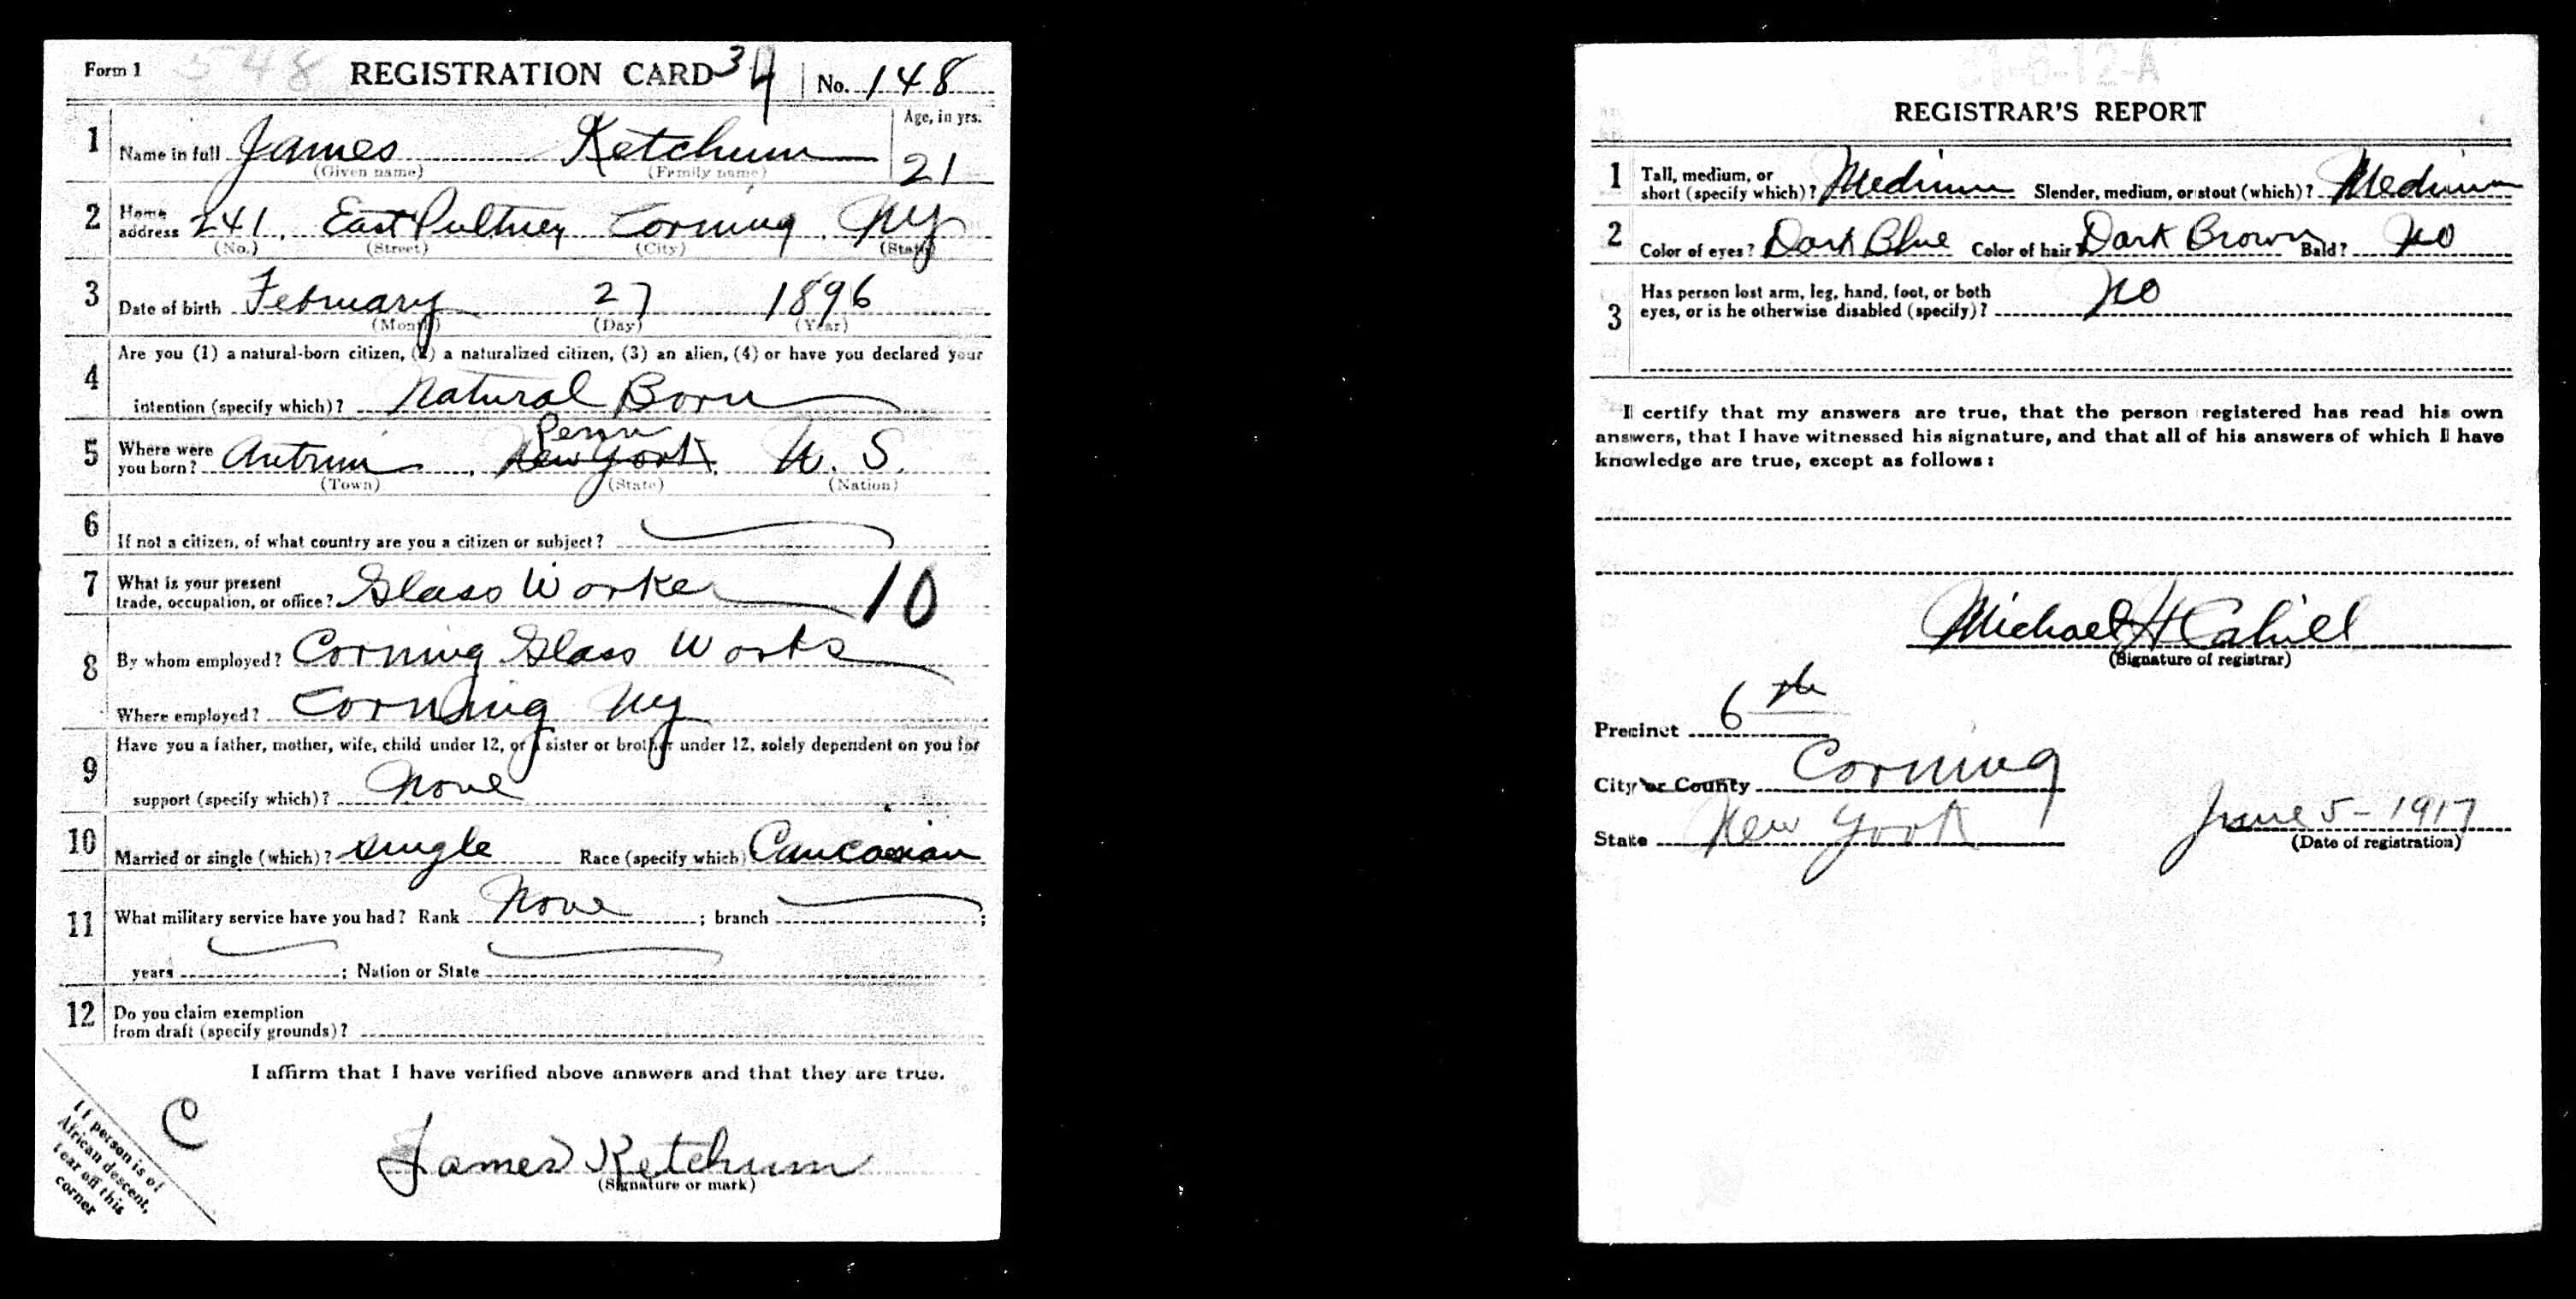 Form 1 548 REGISTRATION CARD 34 No. 148
1 Name in full James Ketchum Age, in yrs.
(Given name) (Family name) 21
2 Home address 241 East Pultney Corning, NY
(No.) (Street) (City) (State)
3 Date of birth February 27 1896
(Month) (Day) (Year)
4 Are you (1) a natural-born citizen, (2) a naturalized citizen, (3) an alien, (4) or have you declared your
intention (specify which)? Natural Born
Penn
5 Where were you born? Antrim, New York, U. S.
(Town) (State) (Nation)
6 If not a citizen, of what country are you a citizen or subject?
7 What is your present
trade, occupation, or office? Glass Worker 10
8 By whom employed? Corning Glass Works
Where employed? Corning NY
9 Have you a father, mother, wife, child under 12, or a sister or brother under 12, solely dependent on you for
support (specify which)? None
10 Married or single (which)? Single Race (specify which) Caucasian
11 What military service have you had? Rank None ; branch ;
years ; Nation or State
12 Do you claim exemption
from draft (specify grounds)?
I affirm that I have verified above answers and that they are true.
C
If person is of
African descent,
tear off this
corner
James Ketchum
(Signature or mark)
31-6-12-A
REGISTRAR'S REPORT
1 Tall, medium, or
short (specify which)? Medium Slender, medium, or stout (which)? Medium
2 Color of eyes? Dark Blue Color of hair? Dark Brown Bald? No
3 Has person lost arm, leg, hand, foot, or both
eyes, or is he otherwise disabled (specify)? No
I certify that my answers are true, that the person registered has read his own
answers, that I have witnessed his signature, and that all of his answers of which I have
knowledge are true, except as follows:
Michael H Cahill
(Signature of registrar)
Precinct 6th
City or County Corning
State New York June 5-1917
(Date of registration)